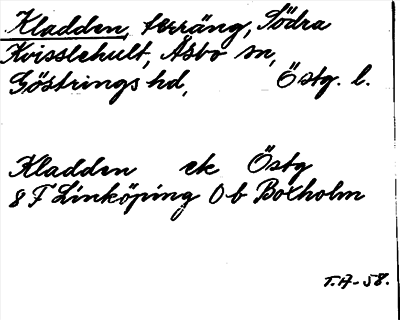 Kladden, terräng, Södra
Kvisslehult, Åsbo sn,
Göstrings hd, Östg. l.
Kladden ek Östg
8 F Linköping 0 b Boxholm
T.A-58.